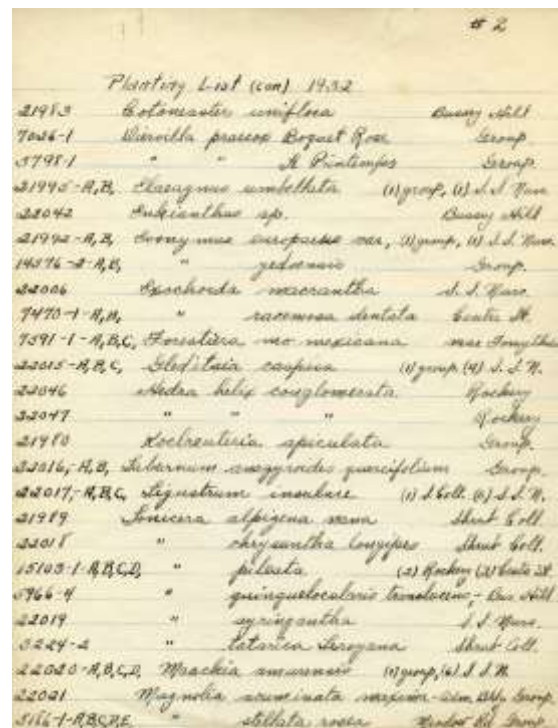 # 2
Planting List (con) 1932
21983 Cotoneaster uniflora Bussey Hill
7026-1 Diervilla praecox Boquet Rose Group
5798-1 " " Le Printemps Group.
21995-A,B, Elaeagnus umbellata (1) group, (1) S. S. Nurs.
22042 Enkianthus sp. Bussey Hill
21992-A,B, Evonymus europaeus var, (1) group, (1) S. S. Nurs.
14576-2-A,B, " yedoensis Group.
22006 Exochorda macrantha S. S. Nurs.
7470-1-A,B, " racemosa dentata Centre St.
7591-1-A,B,C, Forestiera neo mexicana near
22015-A,B,C, Gleditsia caspica (1) group (4) S. S. N.
22046 Hedra helix conglomerata Rockery
22047 " " " Rockery
21980 Koelreuteria apiculata Group.
22016,-A,B, Laburnum anagyroides quercifolium Group.
22017,-A,B,C, Ligustrum insulare (1) S. Coll. (1) S. S. N.
21989 Lonicera alpigena nana Shrub Coll.
22018 " chrysantha longipes Shrub Coll.
15103-1-A,B,C,D, " pileata (2) Rockery (2) Centre St
5966-4 " quinquelocularis translucens, - Bus. Hill
22019 " syringantha S. S. Nurs.
5224-2 " tatarica Leroyana Shrub Coll.
22020-A,B,C,D, Maackia amurensis (1) group, (6) S. S. N.
22021 Magnolia acuminata maxima - Adm. Bldg. Group
5186-1-A,B,C,D,E, " stellata rosea Group